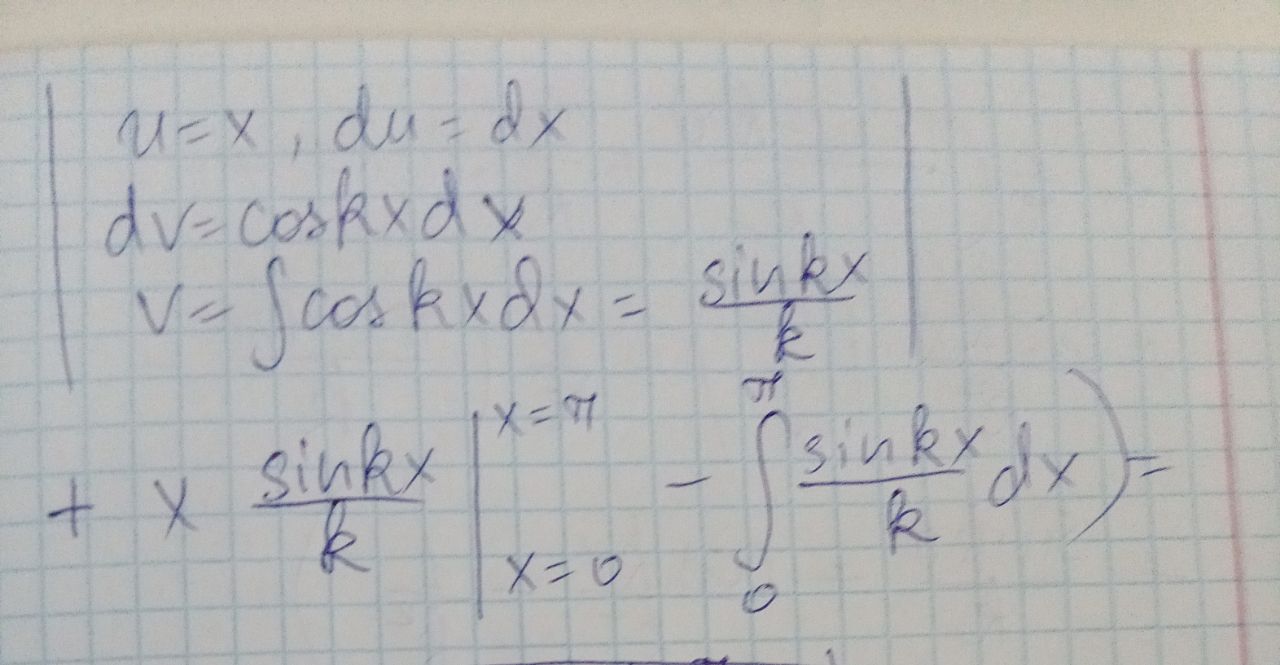 u = x, du = dx
dv = cos kx dx
v = ∫ cos kx dx = sin kx / k
+ x sin kx / k |_{x=0}^{x=π} - ∫_0^π sin kx / k dx) =